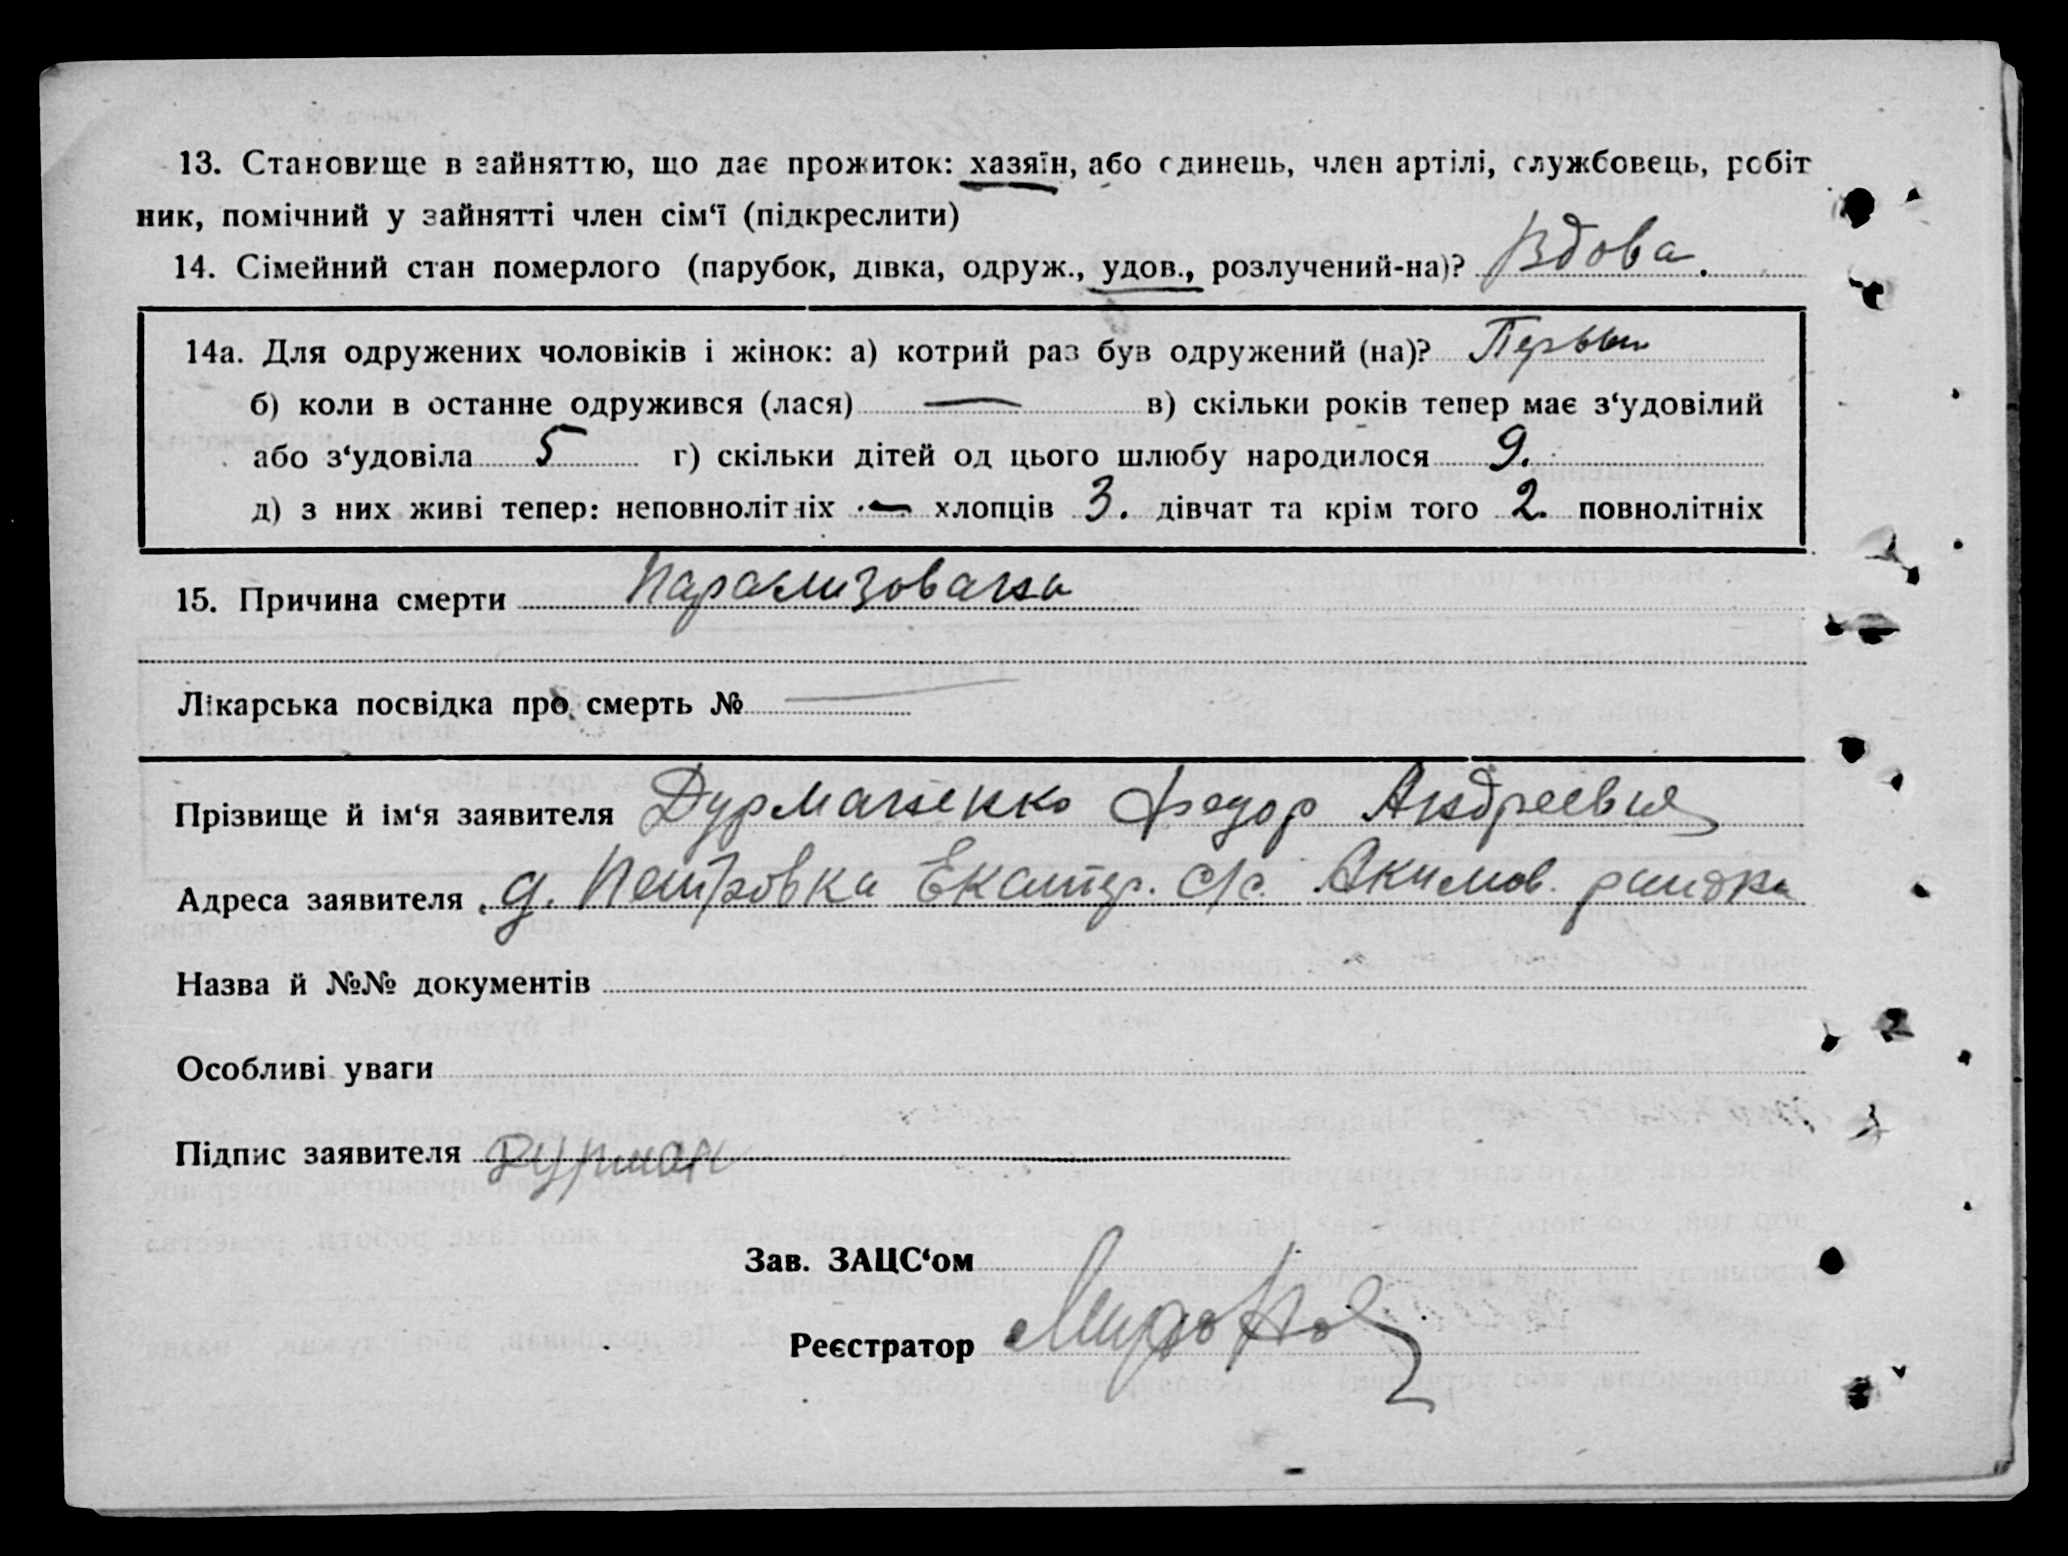 13. Становище в зайняттю, що дає прожиток: хазяїн, або єдинець, член артілі, службовець, робіт
ник, помічний у зайнятті член сім‘ї (підкреслити)
14. Сімейний стан померлого (парубок, дівка, одруж., удов., розлучений-на)? Вдова.
14а. Для одружених чоловіків і жінок: а) котрий раз був одружений (на)? Первый
б) коли в останне одружився (лася) — в) скільки років тепер має з‘удовілий
або з‘удовіла 5 г) скільки дітей од цього шлюбу народилося 9.
д) з них живі тепер: неповнолітніх — хлопців 3. дівчат та крім того 2. повнолітніх
15. Причина смерти Парализована
Лікарська посвідка про смерть № —
Прізвище й ім‘я заявителя Дурманенко Федор Андреевич
Адреса заявителя д. Петровка Екатер. с/с. Акимов. района
Назва й №№ документів
Особливі уваги
Підпис заявителя Дурман
Зав. ЗАЦС‘ом
Реєстратор